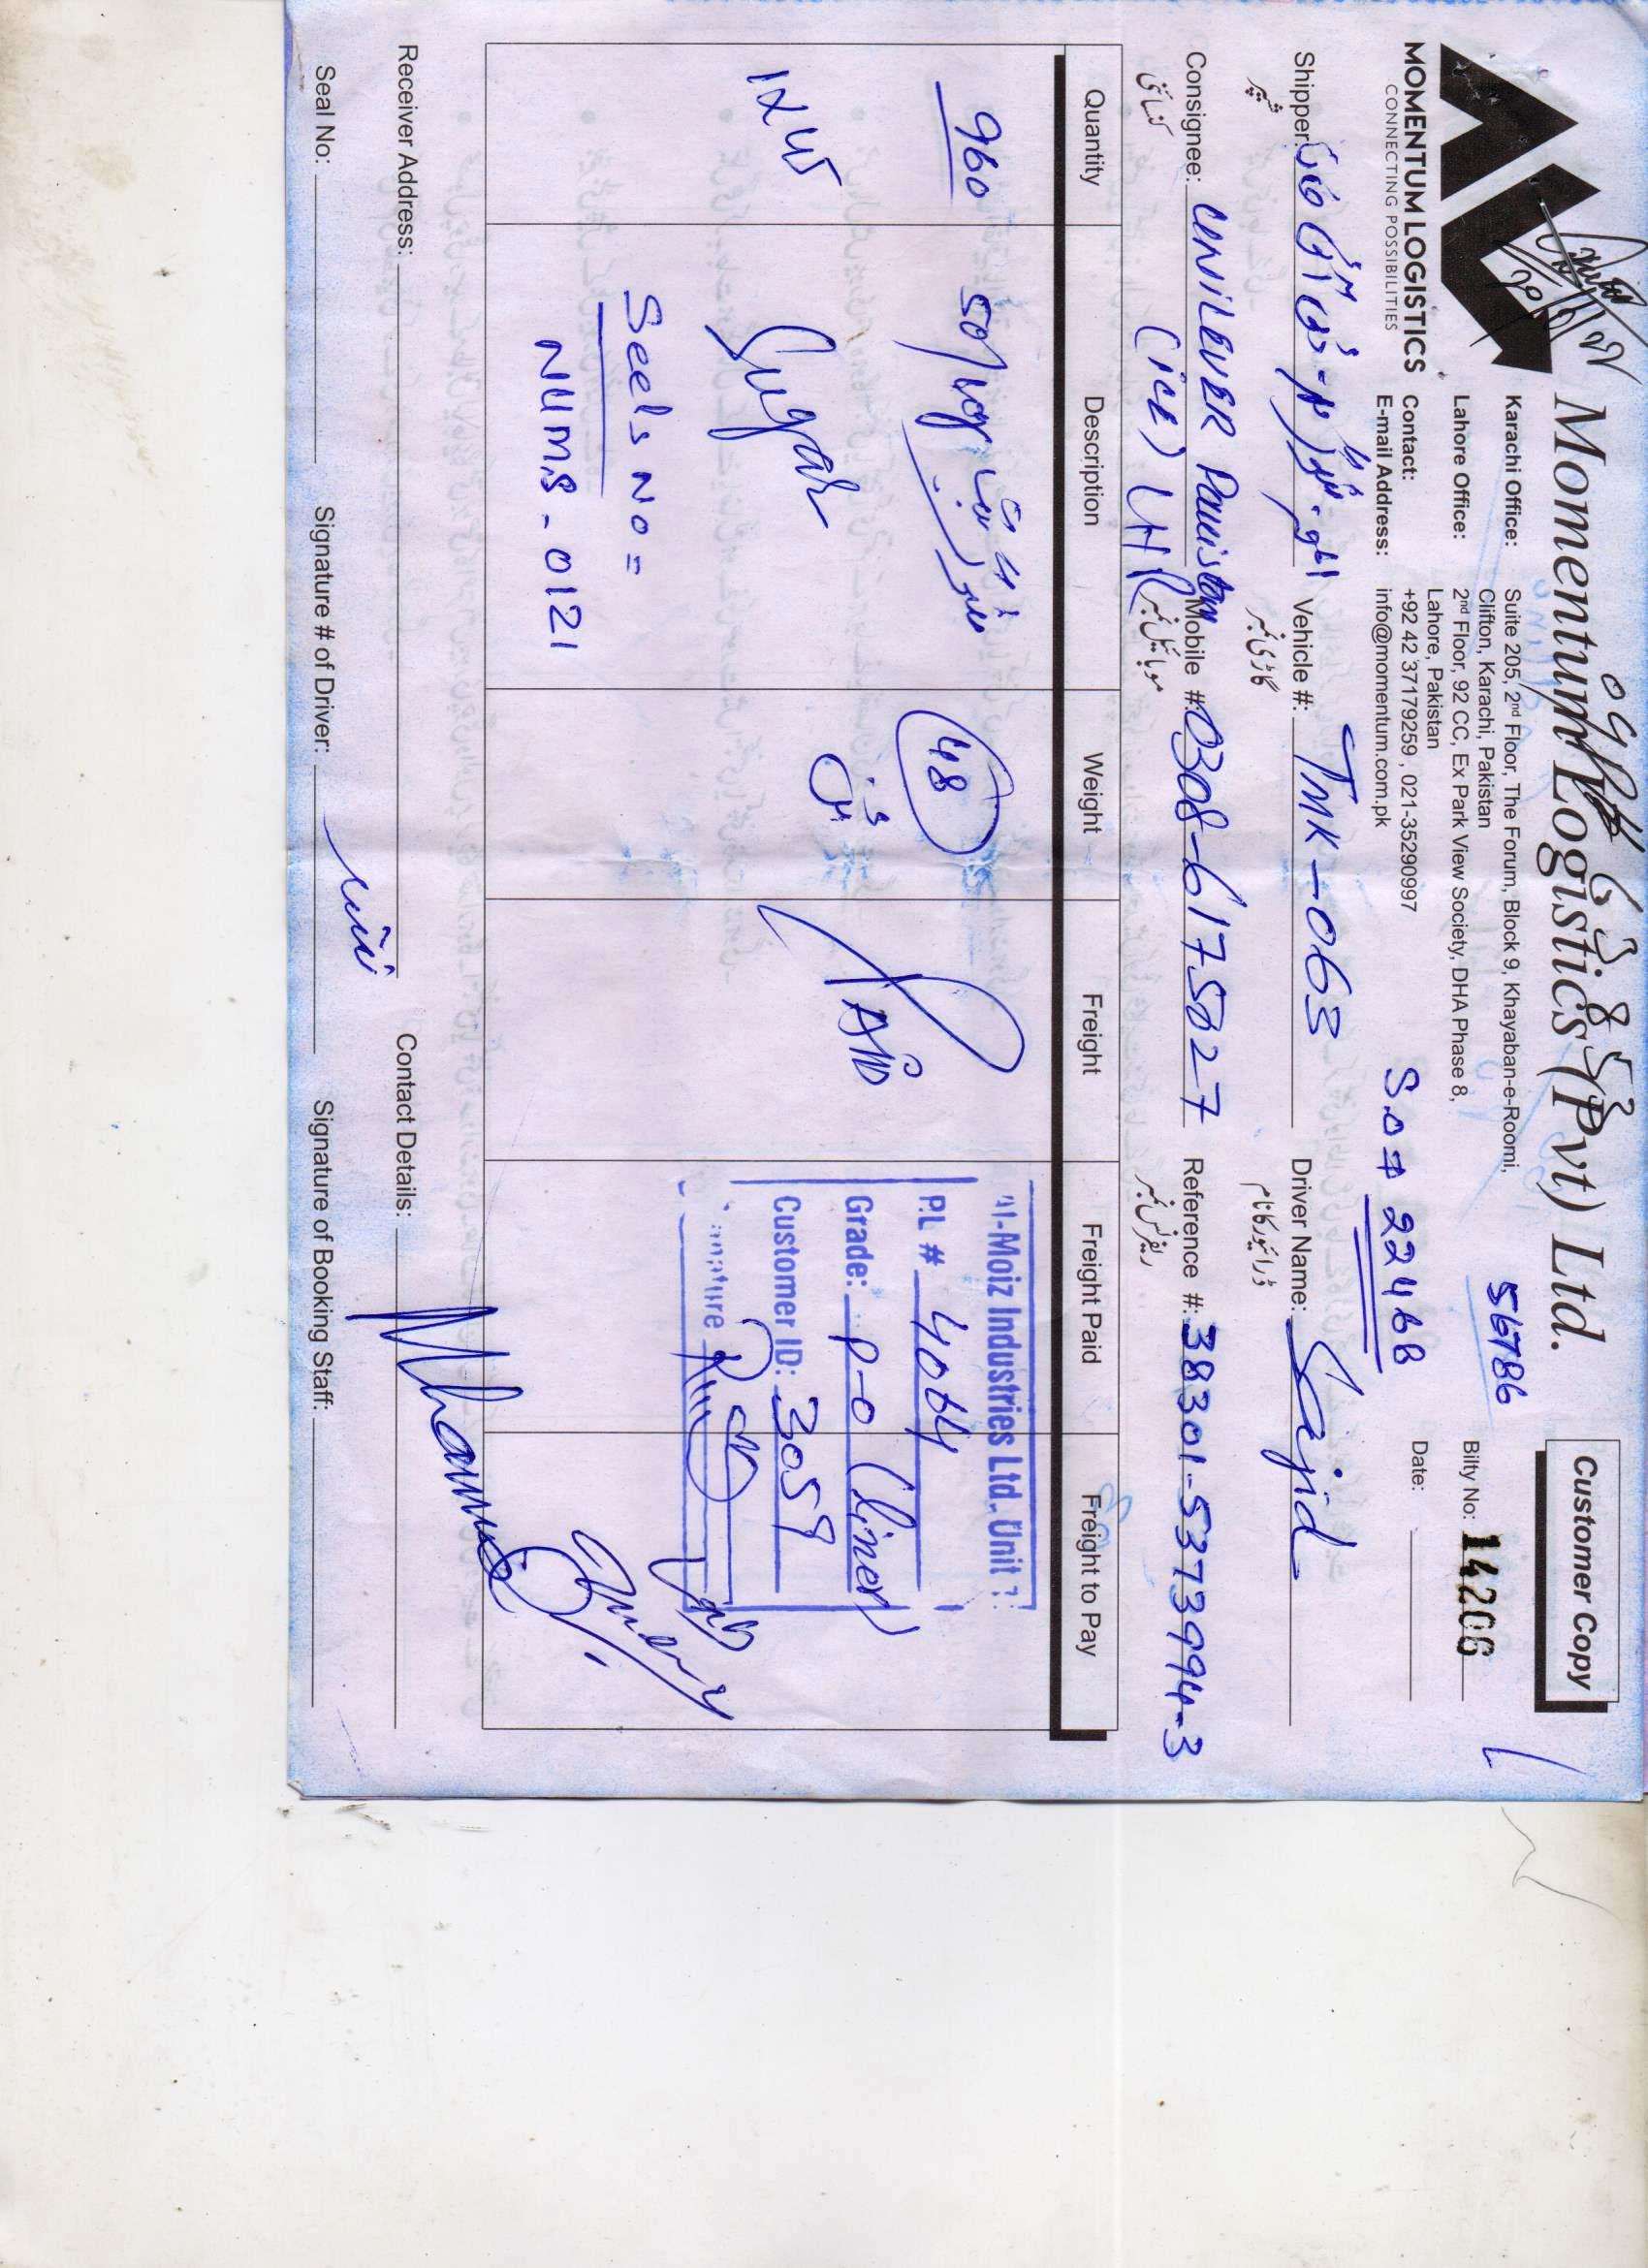 Momentum Logistics (Pvt) Ltd.
Customer Copy
MOMENTUM LOGISTICS
CONNECTING POSSIBILITIES
Karachi Office: Suite 205, 2nd Floor, The Forum, Block 9, Khayaban-e-Roomi,
Clifton, Karachi, Pakistan
Lahore Office: 2nd Floor, 92 CC, Ex Park View Society, DHA Phase 8,
Lahore, Pakistan
Contact: +92 42 37179259 , 021-35290997
E-mail Address: info@momentum.com.pk
56786
S.O # 22468
Bilty No: 14206
Date:
Shipper:
شپر
Vehicle #: TMK-063
گاڑی نمبر
Driver Name: Sajid
ڈرائیور کا نام
Consignee: UNILEVER Pakistan
کنسائنی
(ice) LHR
Mobile #: 0308-6175027
موبائل نمبر
Reference #: 38301-5373994-3
ریفرنس نمبر
Quantity Description Weight Freight Freight Paid Freight to Pay
960
50/kg
48
ٹن
Sugar
Seels No =
NUMS-0121
Al-Moiz Industries Ltd. Unit
P.L # 4064
Grade: P-0 (liner)
Customer ID: 3059
Signature
Receiver Address:
Contact Details:
Seal No:
Signature # of Driver:
Signature of Booking Staff: